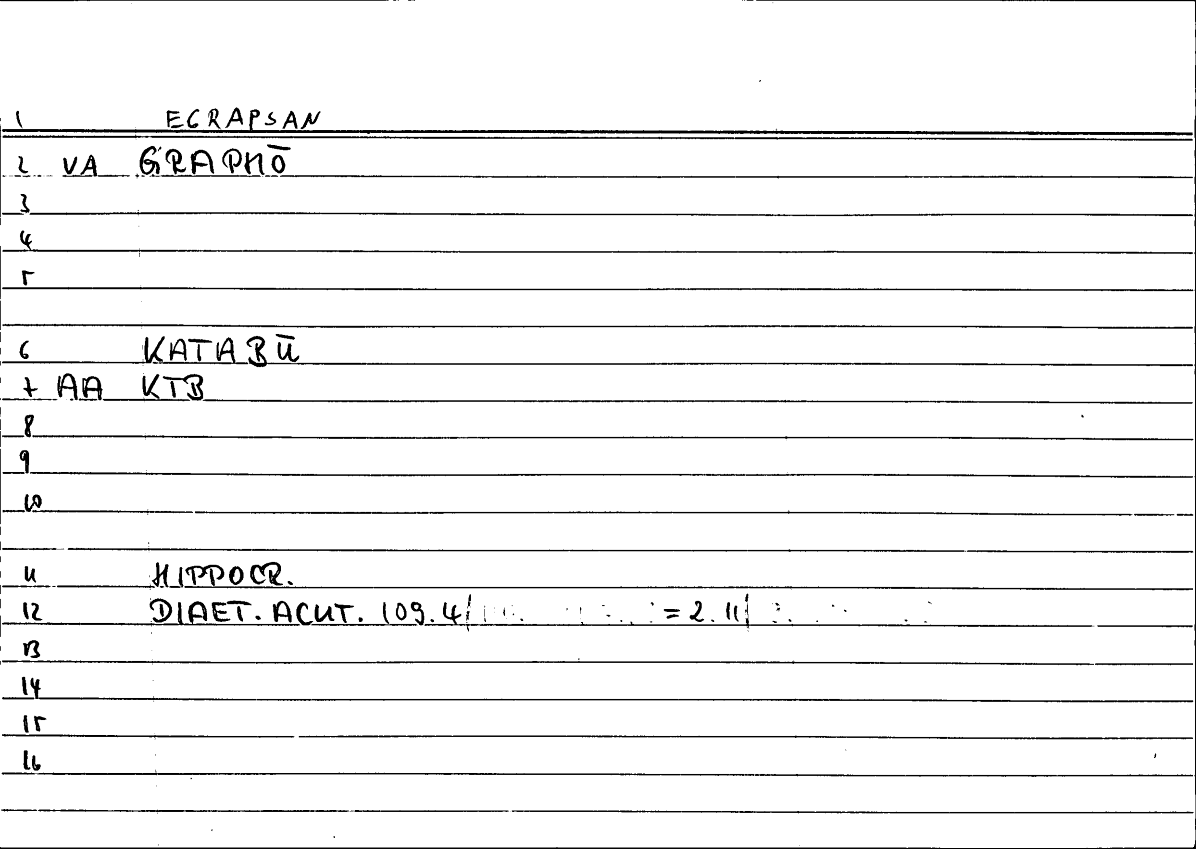 1 EGRAPSAN
2 VA GRAPHŌ
3
4
5
6 KATABŪ
7 AA KTB
8
9
10
11 HIPPOCR.
12 DIAET. ACUT. 109.4 = 2.11
13
14
15
16